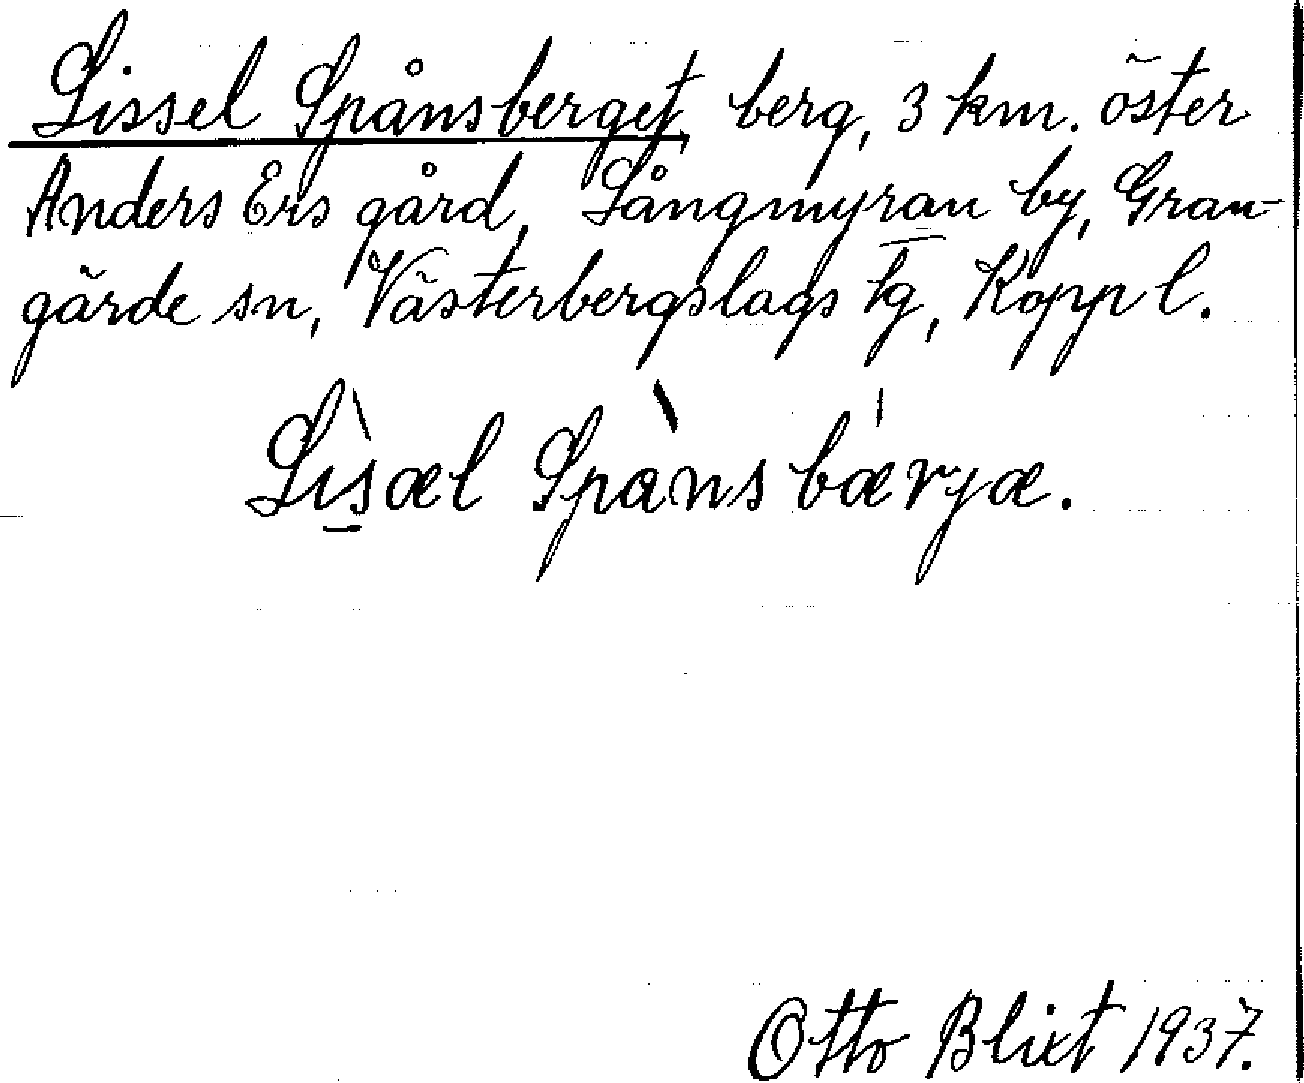 Lissel Spånsberget, berg, 3 km. öster
Anders Ers gård, Långmyran by, Gran-
gärde sn, Västerbergslags tg, Kopp l.
Lı̀sæl Spànsbǽrjæ.
Otto Blixt 1937.